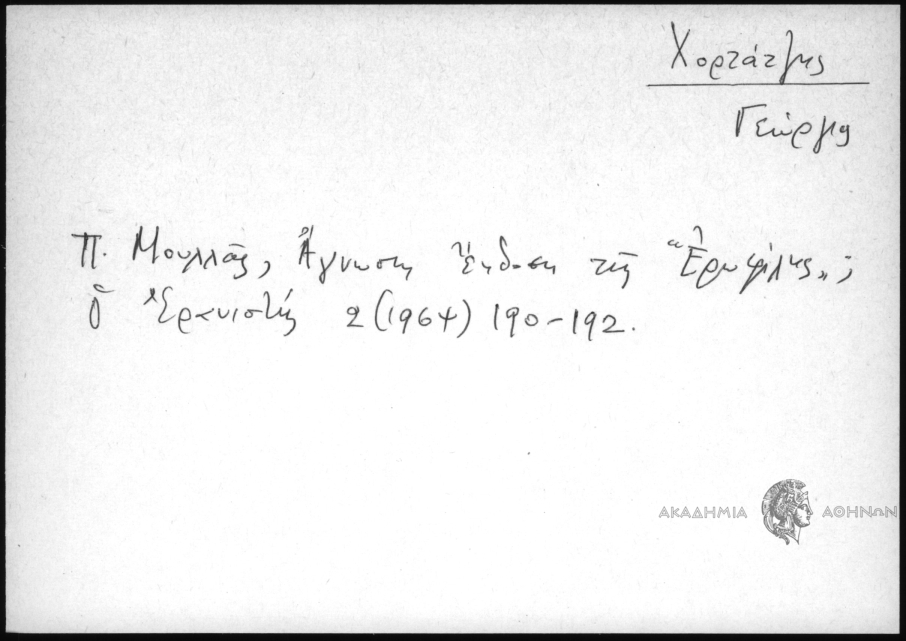 Χορτάτζης
Γεώργιος
Π. Μουλλᾶς, Ἄγνωστη ἔκδοση τῆς "Ἐρωφίλης„;
ὁ Ἐρανιστής 2 (1964) 190-192.
ΑΚΑΔΗΜΙΑ ΑΘΗΝΩΝ